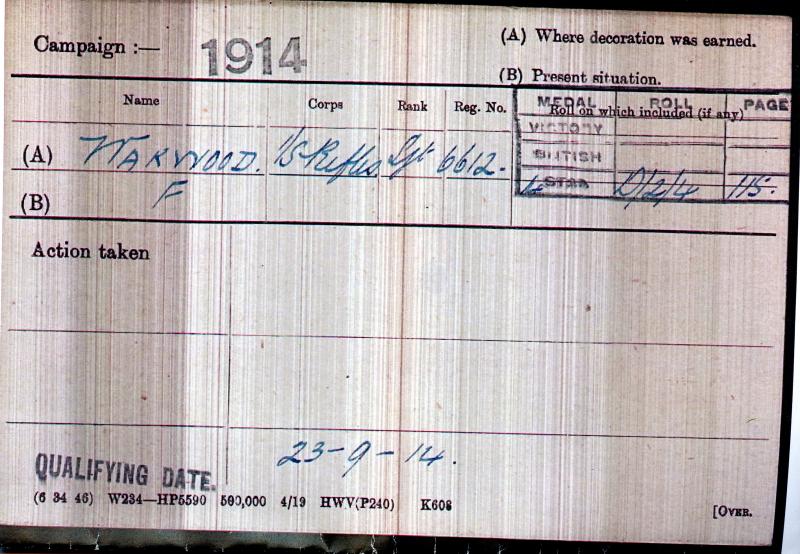 Campaign :— 1914
(A) Where decoration was earned.
(B) Present situation.
Name Corps Rank Reg. No. Roll on which included (if any)
MEDAL ROLL PAGE
VICTORY
BRITISH
(A) WARWOOD. Sjt 6612.
STAR D/2/4 115.
(B) F
Action taken
23-9-14.
QUALIFYING DATE.
(6 34 46) W234—HP5590 500,000 4/19 HWV(P240) K608 [OVER.